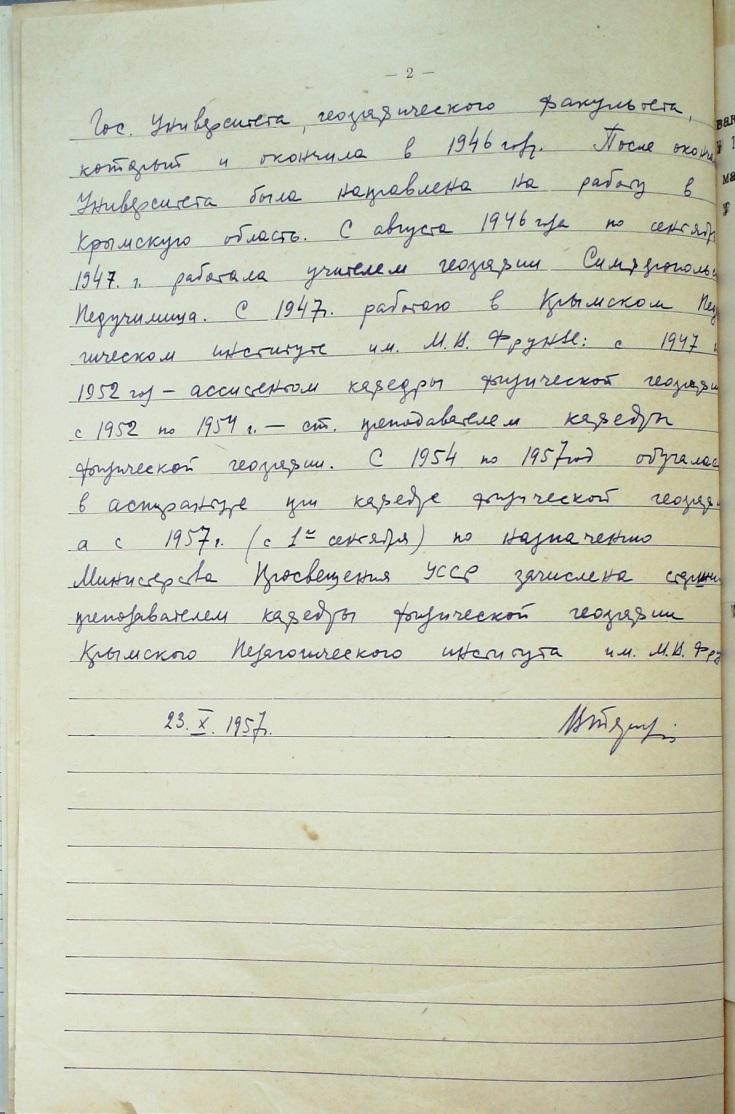 — 2 —
Гос. Университета, географического факультета,
который и окончила в 1946 году. После оконч
Университета была направлена на работу в
Крымскую область. С августа 1946 года по сентябр
1947. г. работала учителем географии Симферопольс
Педучилища. С 1947г. работаю в Крымском Педа
гическом институте им. М.В. Фрунзе: с 1947 п
1952 год – ассистентом кафедры физической географи
с 1952 по 1954 г. – ст. преподавателем кафедры
физической географии. С 1954 по 1957 год обучалас
в аспирантуре при кафедре физической географи
а с 1957г. (с 1го сентября) по назначению
Министерства Просвещения УССР зачислена старши
преподавателем кафедры физической географии
Крымского Педагогического института им. М.В. Фру
23. X. 1957г.